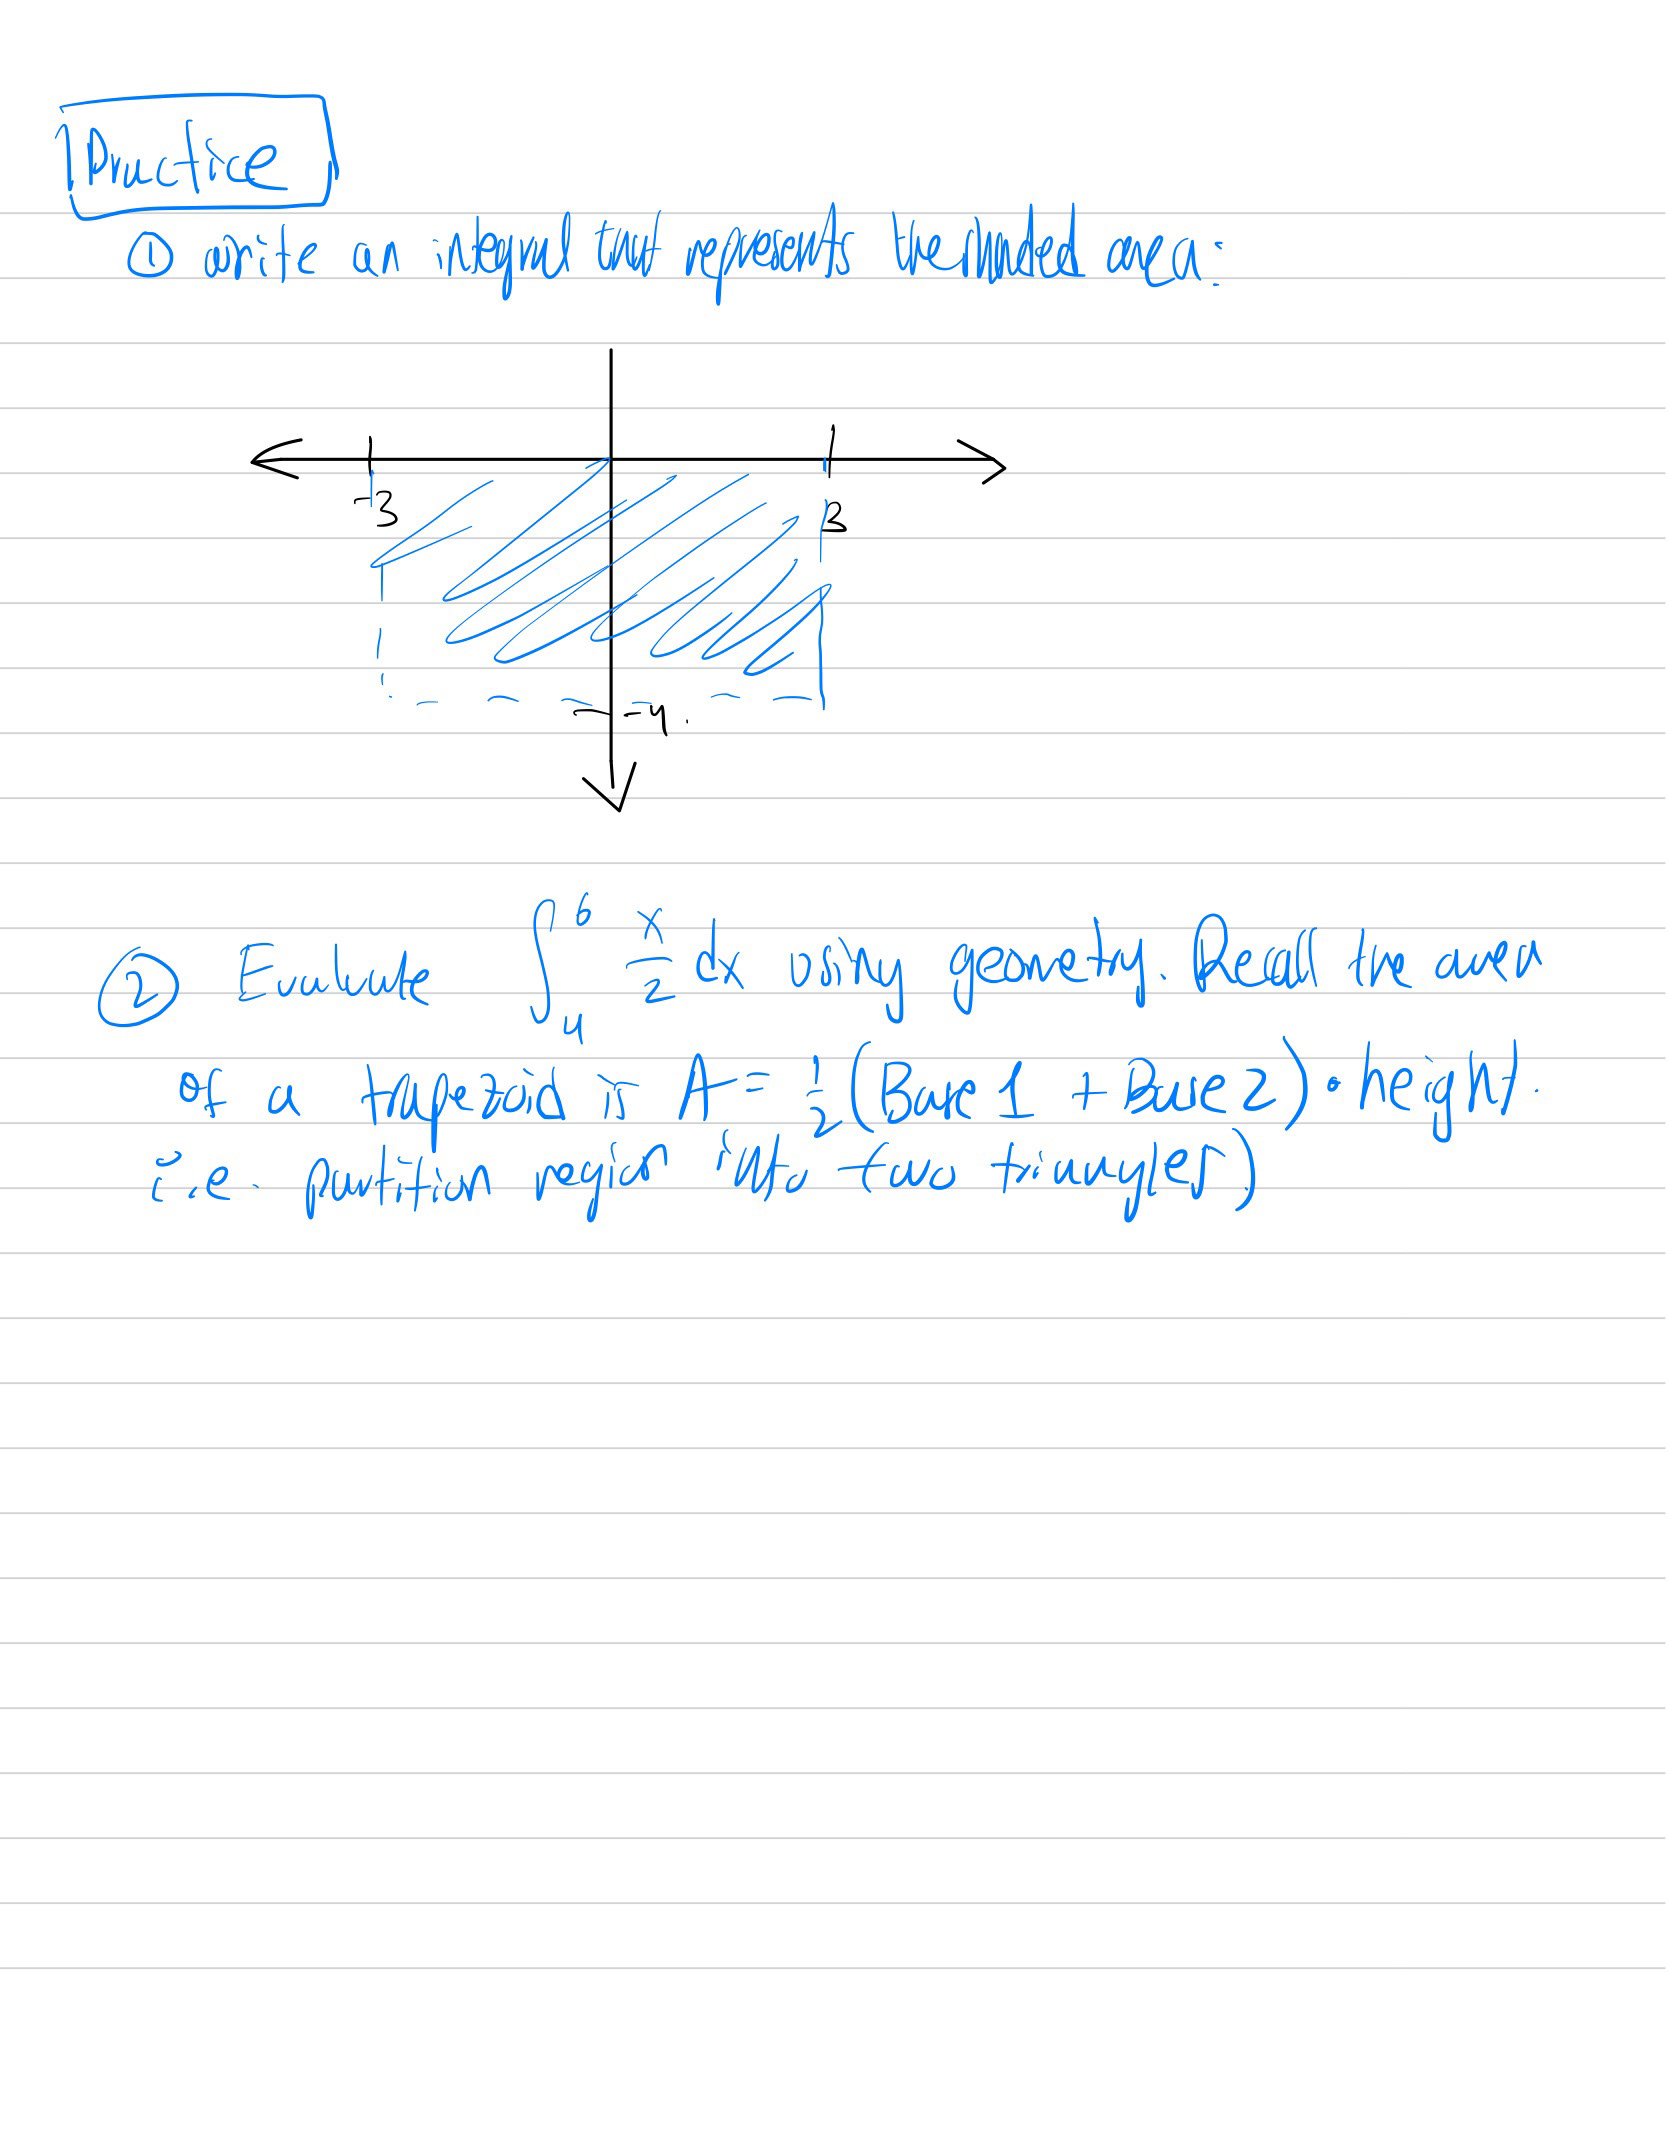 Practice
① write an integral that represents the shaded area:
-3 3
-4
② Evaluate ∫₄⁶ x/2 dx using geometry. Recall the area
of a trapezoid is A = 1/2 (Base 1 + Base 2) • height.
i.e. partition region into two triangles)